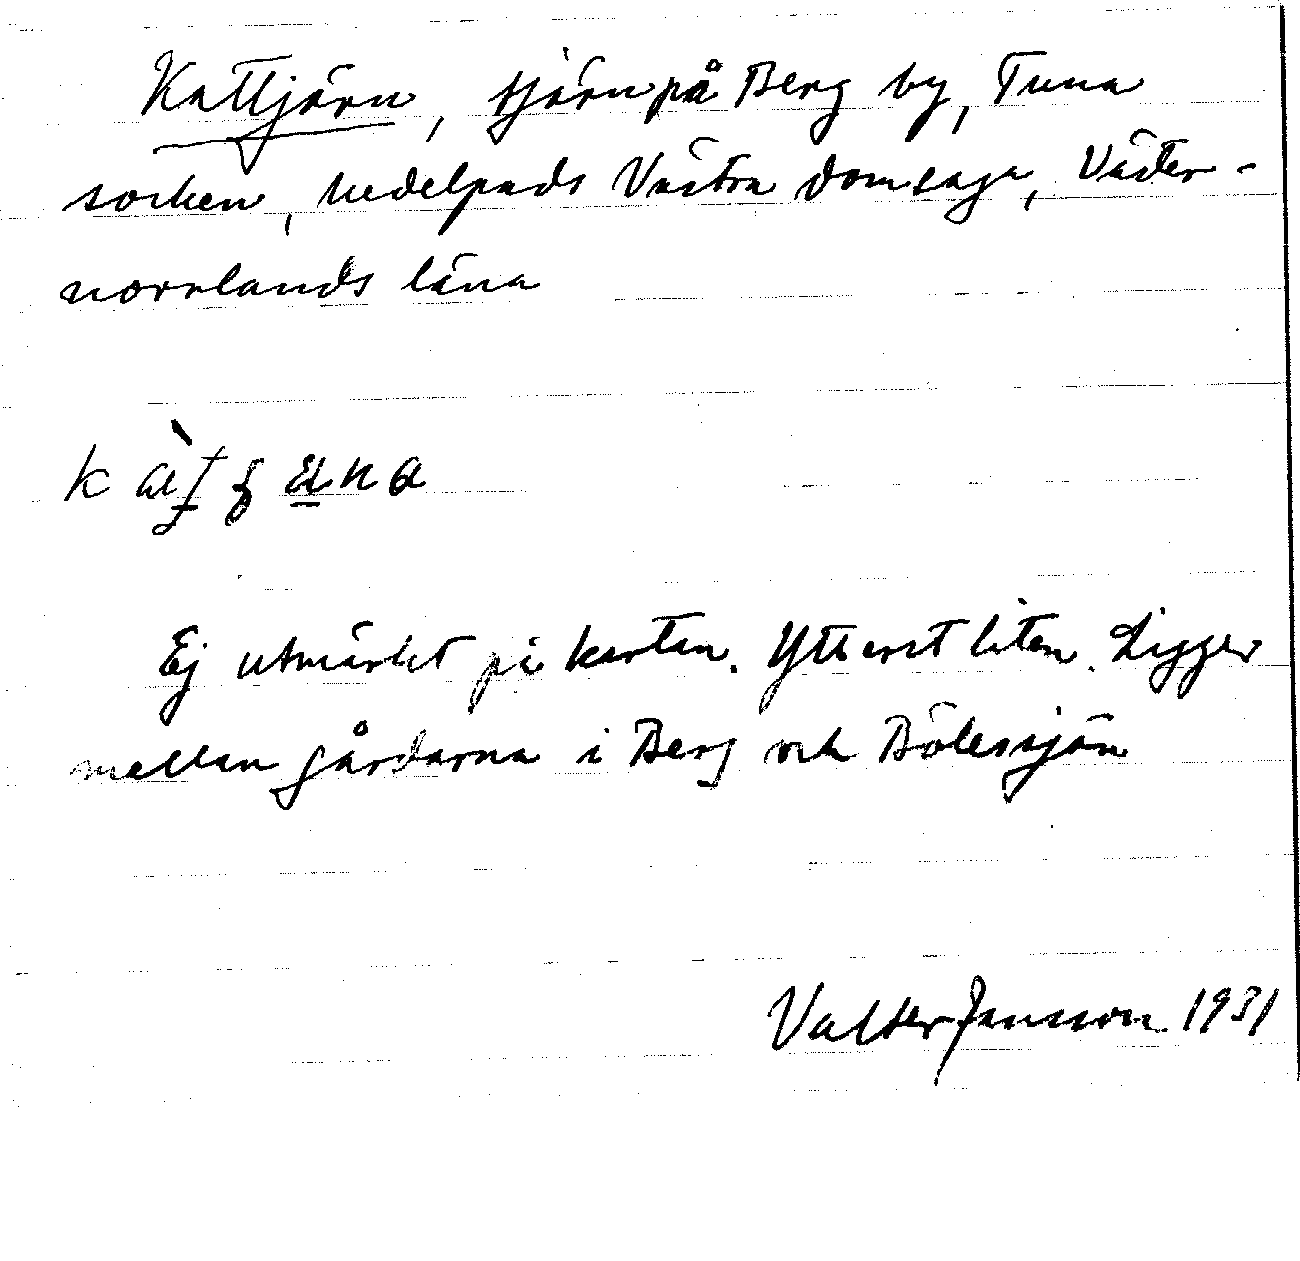 Kattjärn, tjärn på Berg by, Tuna
socken, Medelpads Västra domsaga, Väster-
norrlands läna
Ej utmärkt på kartan. Ytterst liten. Ligger
mellan gårdarna i Berg och Bölessjön
Valter Jansson 1931